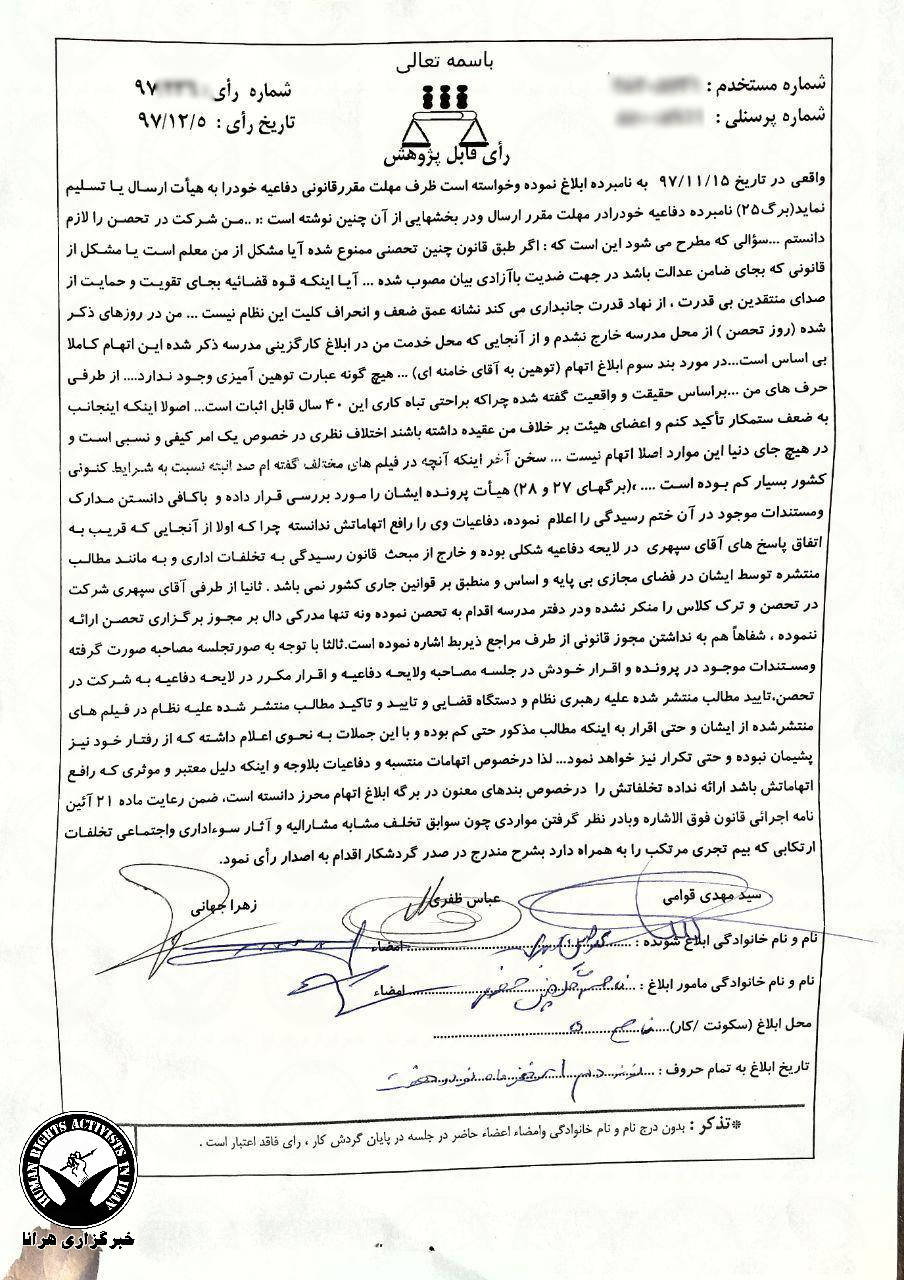 باسمه تعالی
شماره مستخدم :
شماره پرسنلی :
شماره رأی : ۹۷
تاریخ رأی : ۹۷/۱۲/۵
رأی قابل پژوهش
واقعی در تاریخ ۹۷/۱۱/۱۵ به نامبرده ابلاغ نموده وخواسته است ظرف مهلت مقررقانونی دفاعیه خودرا به هیأت ارسال یا تسلیم
نماید(برگ۲۵) نامبرده دفاعیه خودرادر مهلت مقرر ارسال ودر بخشهایی از آن چنین نوشته است :« ..من شرکت در تحصن را لازم
دانستم ...سؤالی که مطرح می شود این است که : اگر طبق قانون چنین تحصنی ممنوع شده آیا مشکل از من معلم است یا مشکل از
قانونی که بجای ضامن عدالت باشد در جهت ضدیت باآزادی بیان مصوب شده ... آیا اینکه قوه قضائیه بجای تقویت و حمایت از
صدای منتقدین بی قدرت ، از نهاد قدرت جانبداری می کند نشانه عمق ضعف و انحراف کلیت این نظام نیست ... من در روزهای ذکر
شده (روز تحصن ) از محل مدرسه خارج نشدم و از آنجایی که محل خدمت من در ابلاغ کارگزینی مدرسه ذکر شده این اتهام کاملا
بی اساس است...در مورد بند سوم ابلاغ اتهام (توهین به آقای خامنه ای) ... هیچ گونه عبارت توهین آمیزی وجود ندارد.... از طرفی
حرف های من ...براساس حقیقت و واقعیت گفته شده چراکه براحتی تباه کاری این ۴۰ سال قابل اثبات است... اصولا اینکه اینجانب
به ضعف ستمکار تأکید کنم و اعضای هیئت بر خلاف من عقیده داشته باشند اختلاف نظری در خصوص یک امر کیفی و نسبی است و
در هیچ جای دنیا این موارد اصلا اتهام نیست ... سخن آخر اینکه آنچه در فیلم های مختلف گفته ام صد البته نسبت به شرایط کنونی
کشور بسیار کم بوده است .... »(برگهای ۲۷ و ۲۸) هیأت پرونده ایشان را مورد بررسی قرار داده و باکافی دانستن مدارک
ومستندات موجود در آن ختم رسیدگی را اعلام نموده، دفاعیات وی را رافع اتهاماتش ندانسته چرا که اولا از آنجایی که قریب به
اتفاق پاسخ های آقای سپهری در لایحه دفاعیه شکلی بوده و خارج از مبحث قانون رسیدگی به تخلفات اداری و به مانند مطالب
منتشره توسط ایشان در فضای مجازی بی پایه و اساس و منطبق بر قوانین جاری کشور نمی باشد . ثانیا از طرفی آقای سپهری شرکت
در تحصن و ترک کلاس را منکر نشده ودر دفتر مدرسه اقدام به تحصن نموده ونه تنها مدرکی دال بر مجوز برگزاری تحصن ارائه
ننموده ، شفاهاً هم به نداشتن مجوز قانونی از طرف مراجع ذیربط اشاره نموده است.ثالثا با توجه به صورتجلسه مصاحبه صورت گرفته
ومستندات موجود در پرونده و اقرار خودش در جلسه مصاحبه ولایحه دفاعیه و اقرار مکرر در لایحه دفاعیه به شرکت در
تحصن،تایید مطالب منتشر شده علیه رهبری نظام و دستگاه قضایی و تایید و تاکید مطالب منتشر شده علیه نظام در فیلم های
منتشرشده از ایشان و حتی اقرار به اینکه مطالب مذکور حتی کم بوده و با این جملات به نحوی اعلام داشته که از رفتار خود نیز
پشیمان نبوده و حتی تکرار نیز خواهد نمود... لذا درخصوص اتهامات منتسبه و دفاعیات بلاوجه و اینکه دلیل معتبر و موثری که رافع
اتهاماتش باشد ارائه نداده تخلفاتش را درخصوص بندهای معنون در برگه ابلاغ اتهام محرز دانسته است، ضمن رعایت ماده ۲۱ آئین
نامه اجرائی قانون فوق الاشاره وبادر نظر گرفتن مواردی چون سوابق تخلف مشابه مشارالیه و آثار سوءاداری واجتماعی تخلفات
ارتکابی که بیم تجری مرتکب را به همراه دارد بشرح مندرج در صدر گردشکار اقدام به اصدار رأی نمود.
سید مهدی قوامی عباس ظفری زهرا جهانی
نام و نام خانوادگی ابلاغ شونده : امضاء
نام و نام خانوادگی مامور ابلاغ : امضاء
محل ابلاغ (سکونت /کار)
تاریخ ابلاغ به تمام حروف :
*تذکر : بدون درج نام و نام خانوادگی وامضاء اعضاء حاضر در جلسه در پایان گردش کار ، رای فاقد اعتبار است .
HUMAN RIGHTS ACTIVISTS IN IRAN
خبرگزاری هرانا